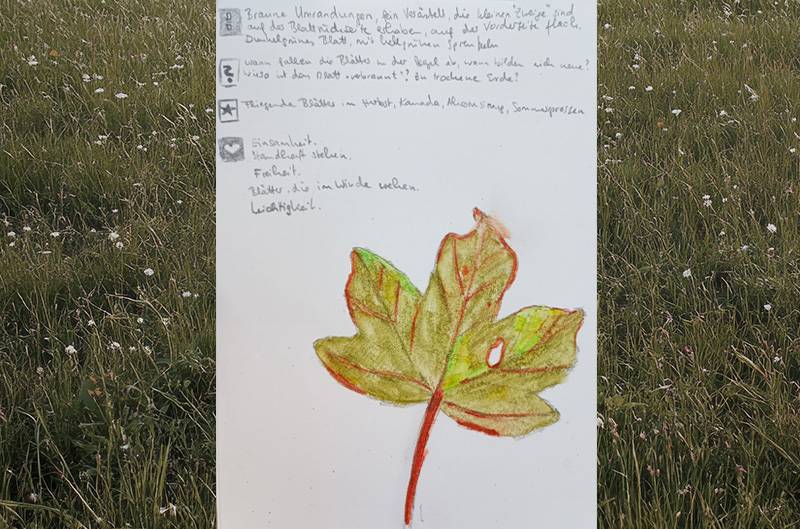 Braune Umrandungen, fein verästelt, die kleinen "Zweige" sind
auf der Blattrückseite erhaben, auf der Vorderseite flach.
Dunkelgrünes Blatt, mit hellgrünen Sprenkeln
?
wann fallen die Blätter in der Regel ab, wann bilden sich neue?
Wieso ist das Blatt "verbrannt"? Zu trockene Erde?
Fliegende Blätter im Herbst, Kanada, Ahornsirup, Sommersprossen
Einsamkeit.
Standhaft stehen.
Freiheit.
Blätter, die im Winde wehen.
Leichtigkeit.